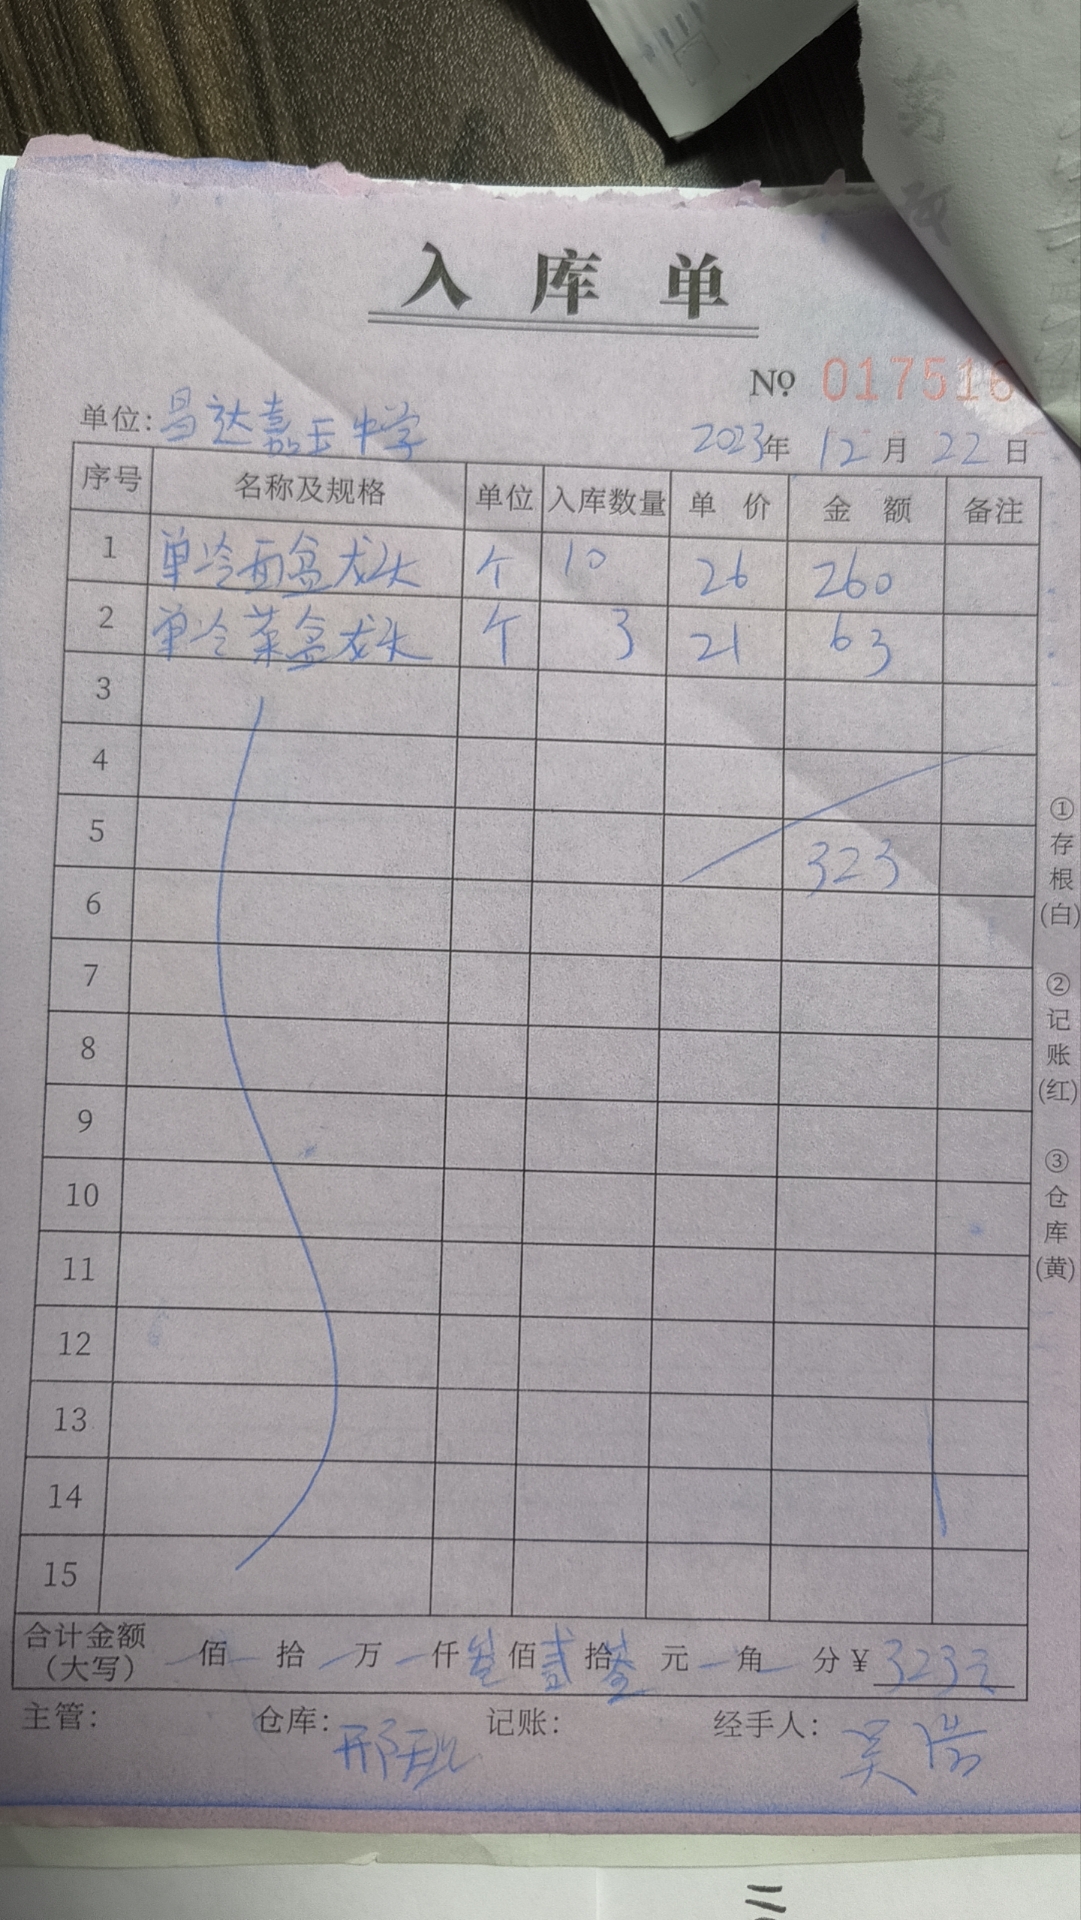 入 库 单
№ 017516
单位：昌达嘉玉中学 2023年 12月 22日
序号 名称及规格 单位 入库数量 单 价 金 额 备注
1 单冷面盆龙头 个 10 26 260
2 单冷菜盆龙头 个 3 21 63
3
4
5 323
6
7
8
9
10
11
12
13
14
15
合计金额（大写） 佰 拾 万 仟 叁佰 贰拾 叁元 角 分 ¥ 323元
主管： 仓库：邢 记账： 经手人：吴浩
①存根(白) ②记账(红) ③仓库(黄)